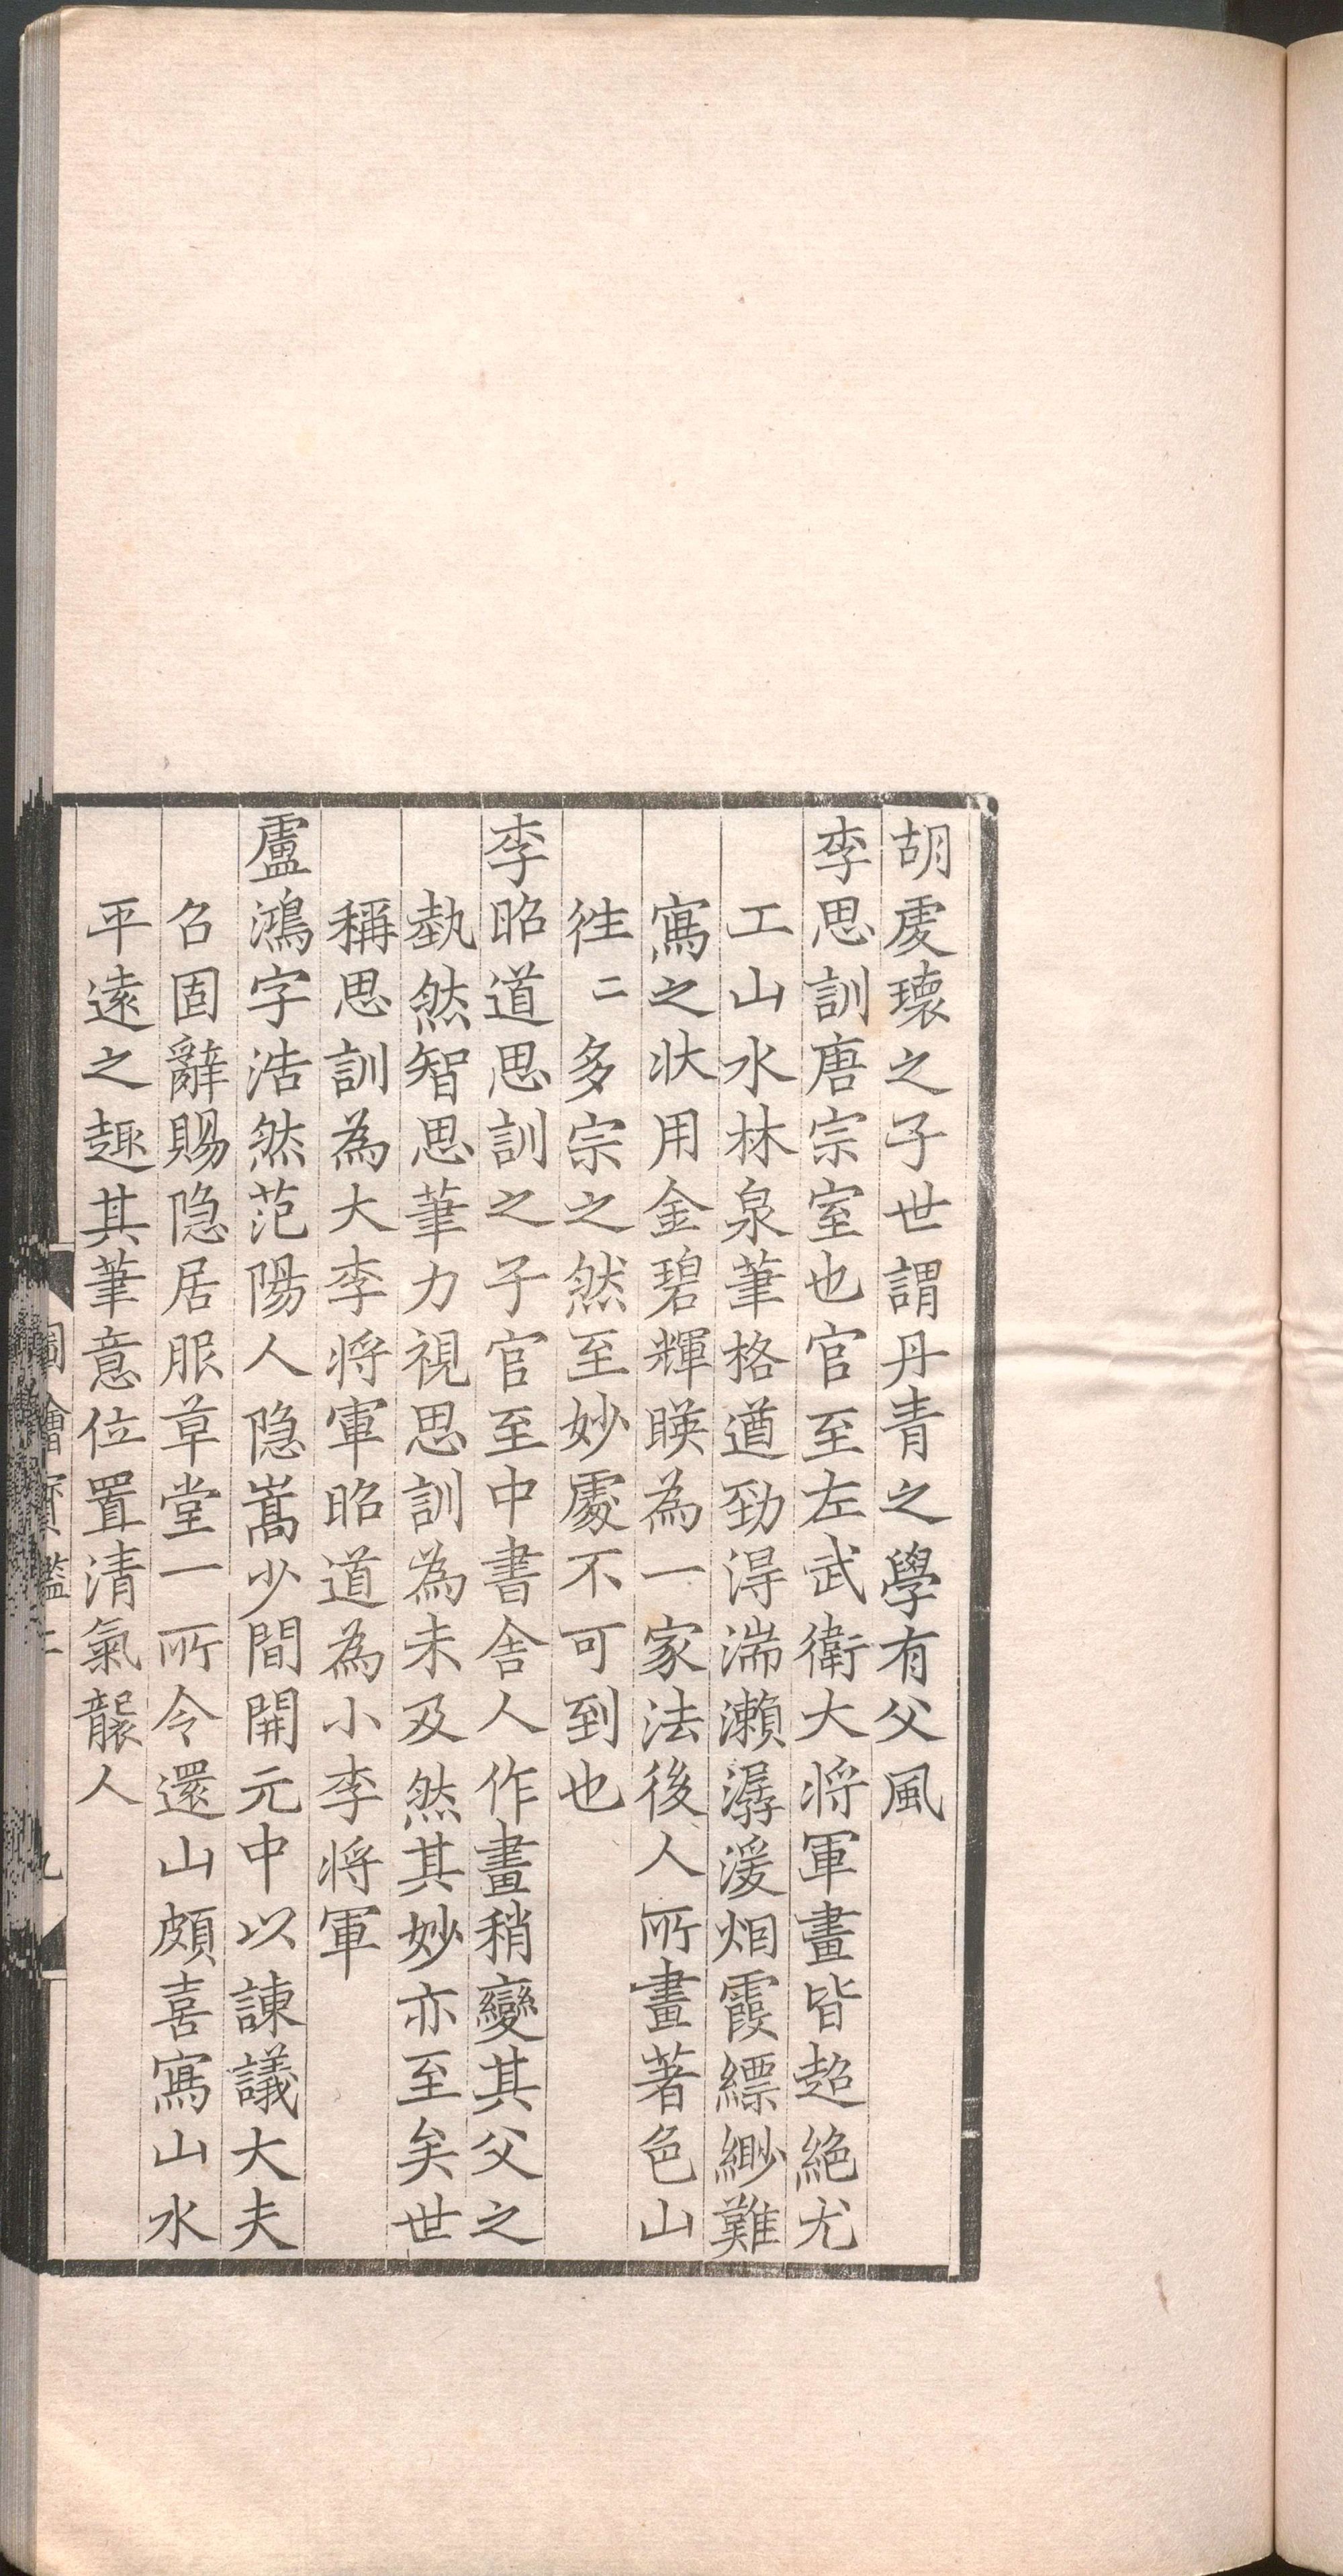 胡虔瓌之子世謂丹青之學有父風
李思訓唐宗室也官至左武衛大将軍畫皆超絶尤
工山水林泉筆格遒勁淂湍瀨潺湲烟霞縹緲難
寫之状用金碧輝暎為一家法後人所畫著色山
徃二多宗之然至妙處不可到也
李昭道思訓之子官至中書舎人作畫稍變其父之
埶然智思筆力視思訓為未及然其妙亦至矣世
稱思訓為大李将軍昭道為小李将軍
盧鴻字浩然范陽人隐嵩少間開元中以諫議大夫
召固辭賜隐居服草堂一所令還山頗喜寫山水
平遠之趣其筆意位置清氣襲人
圖繪寳鑑二
九